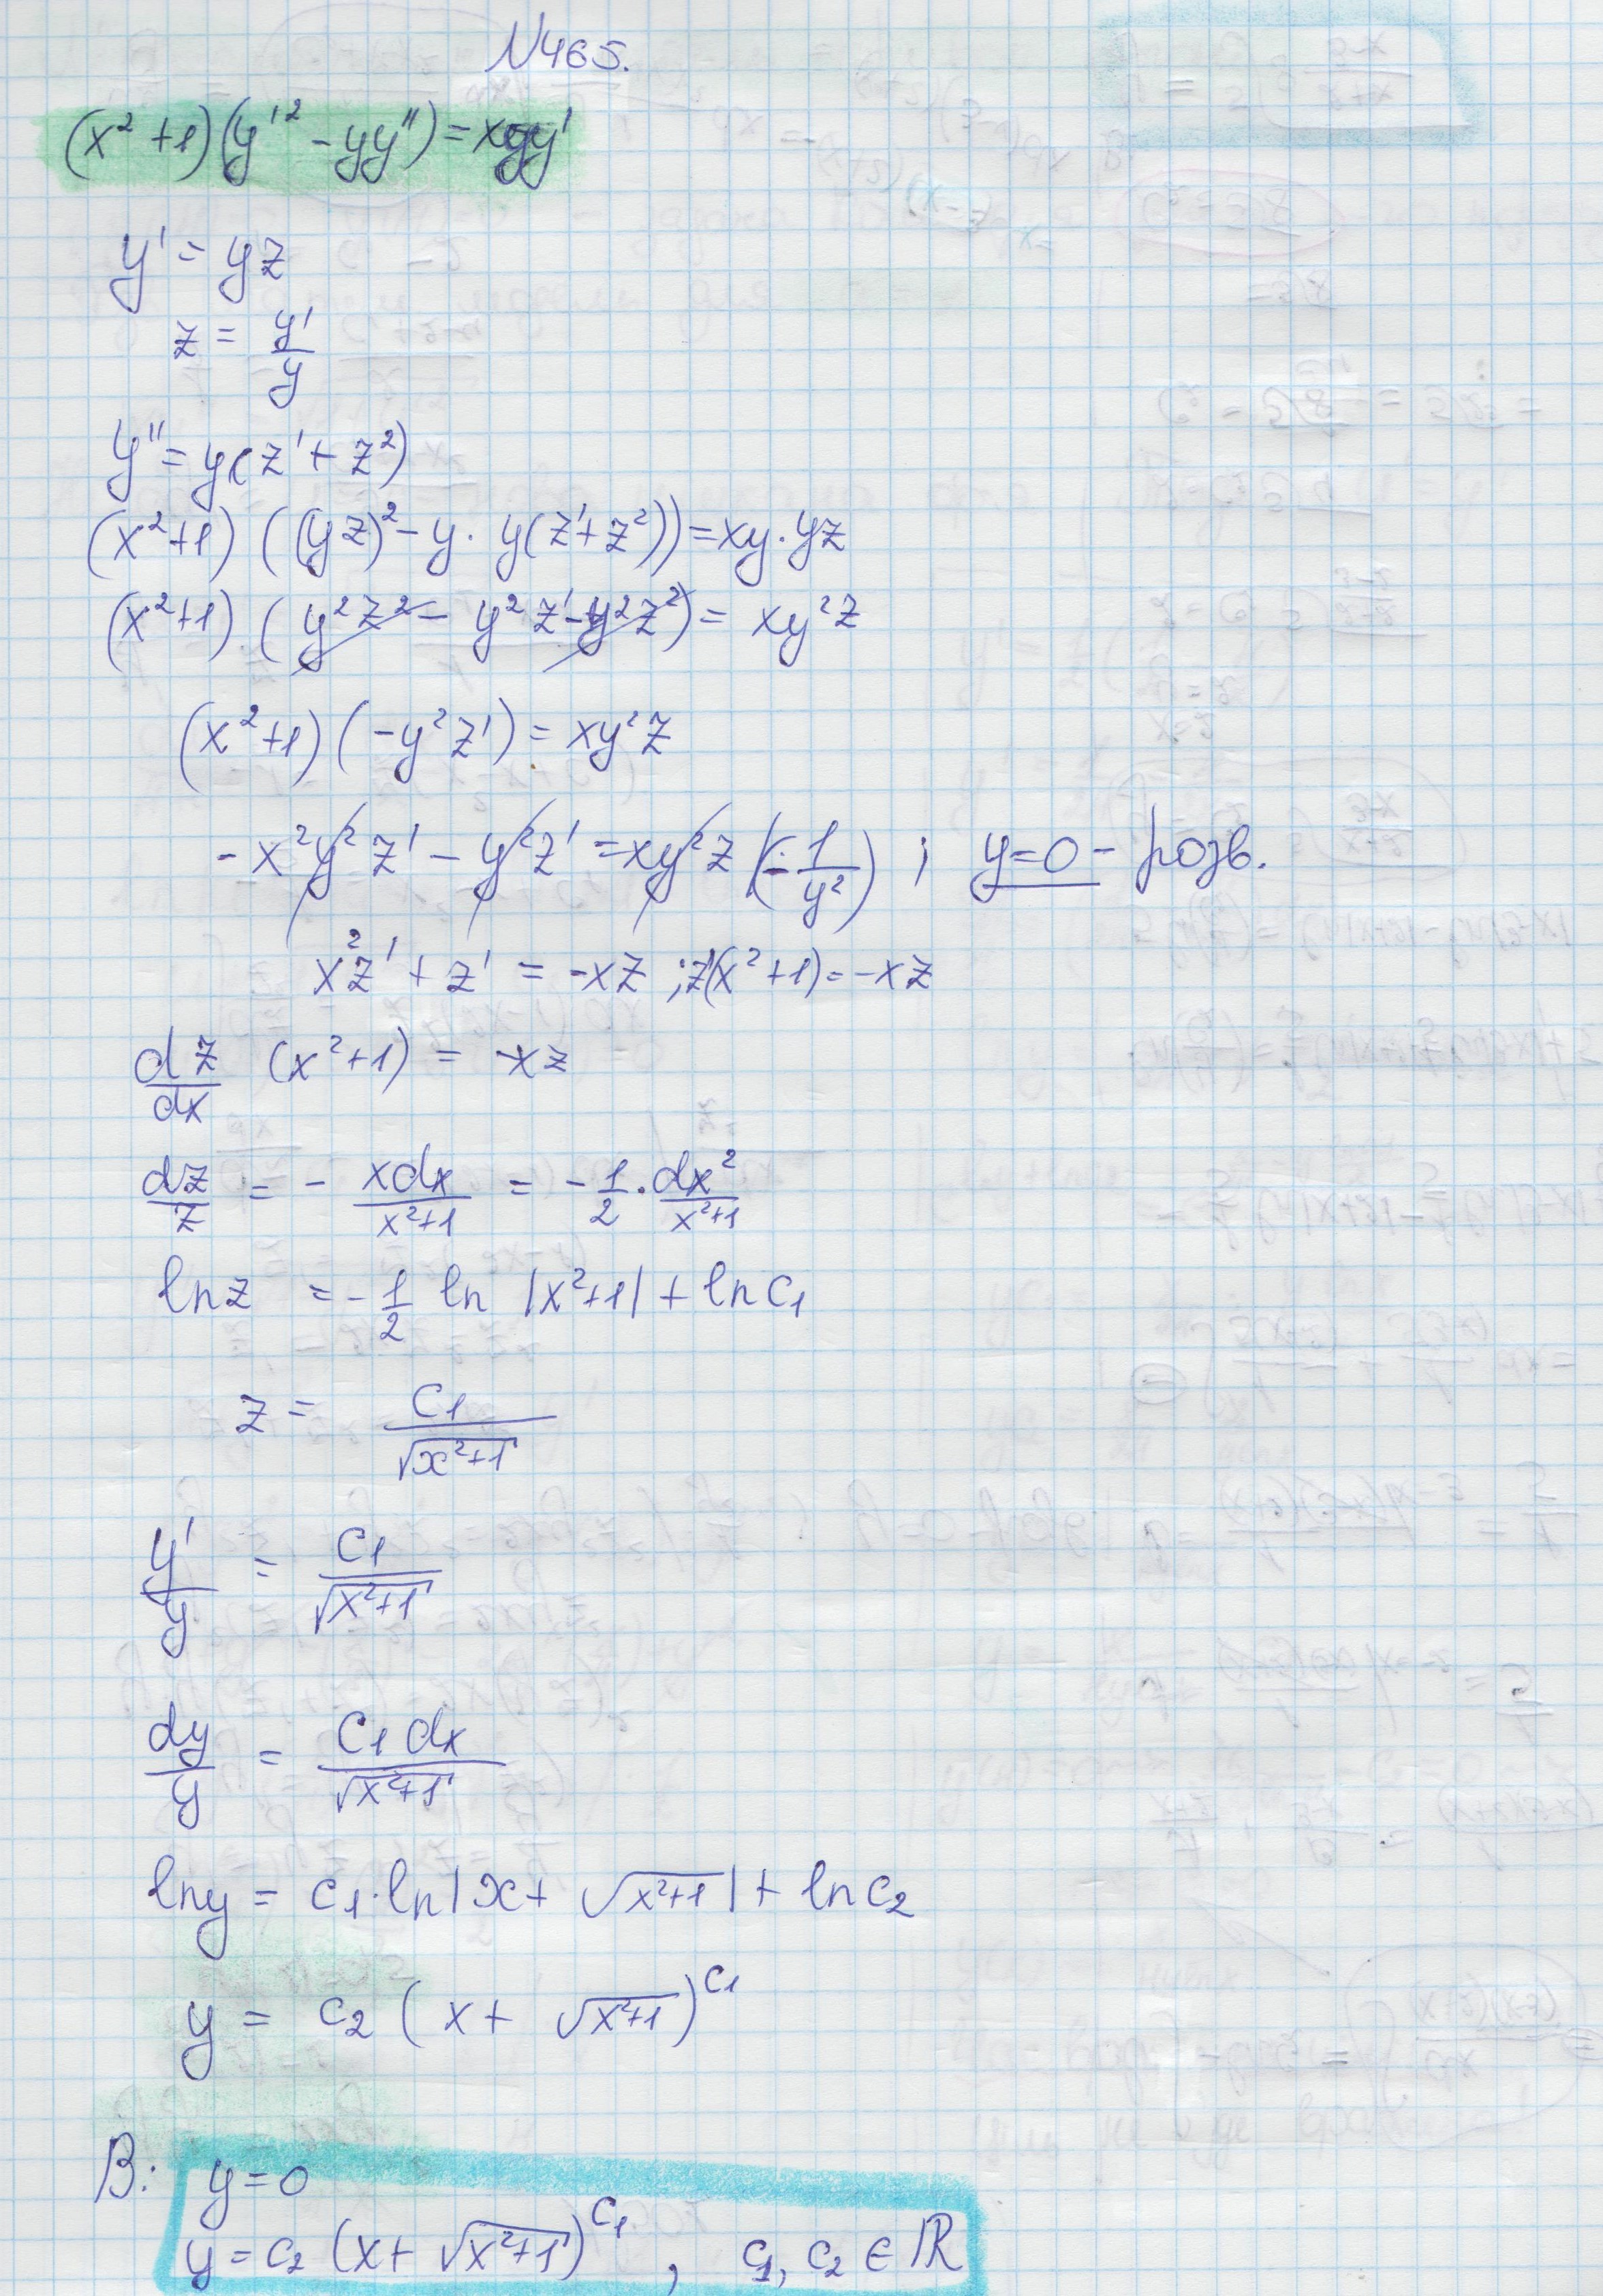 N465.
(x² + 1)(y'² - yy'') = xyy'
y' = yz
z = y'/y
y'' = y(z' + z²)
(x²+1) ((yz)² - y · y(z'+z²)) = xy·yz
(x²+1) · (y²z² - y²z' - y²z²) = xy²z
(x²+1)(-y²z') = xy²z
-x²y²z' - y²z' = xy²z |(-1/y²) ; y=0 - розв.
x²z' + z' = -xz ; z'(x²+1) = -xz
dz/dx (x²+1) = -xz
dz/z = - xdx/(x²+1) = -1/2 · dx²/(x²+1)
ln z = -1/2 ln |x²+1| + ln C₁
z = C₁/√(x²+1)
y'/y = C₁/√(x²+1)
dy/y = C₁ dx/√(x²+1)
ln y = C₁ · ln |x + √(x²+1)| + ln C₂
y = C₂ (x + √(x²+1))^C₁
В: y = 0
y = C₂ (x + √(x²+1))^C₁ , C₁, C₂ ∈ ℝ